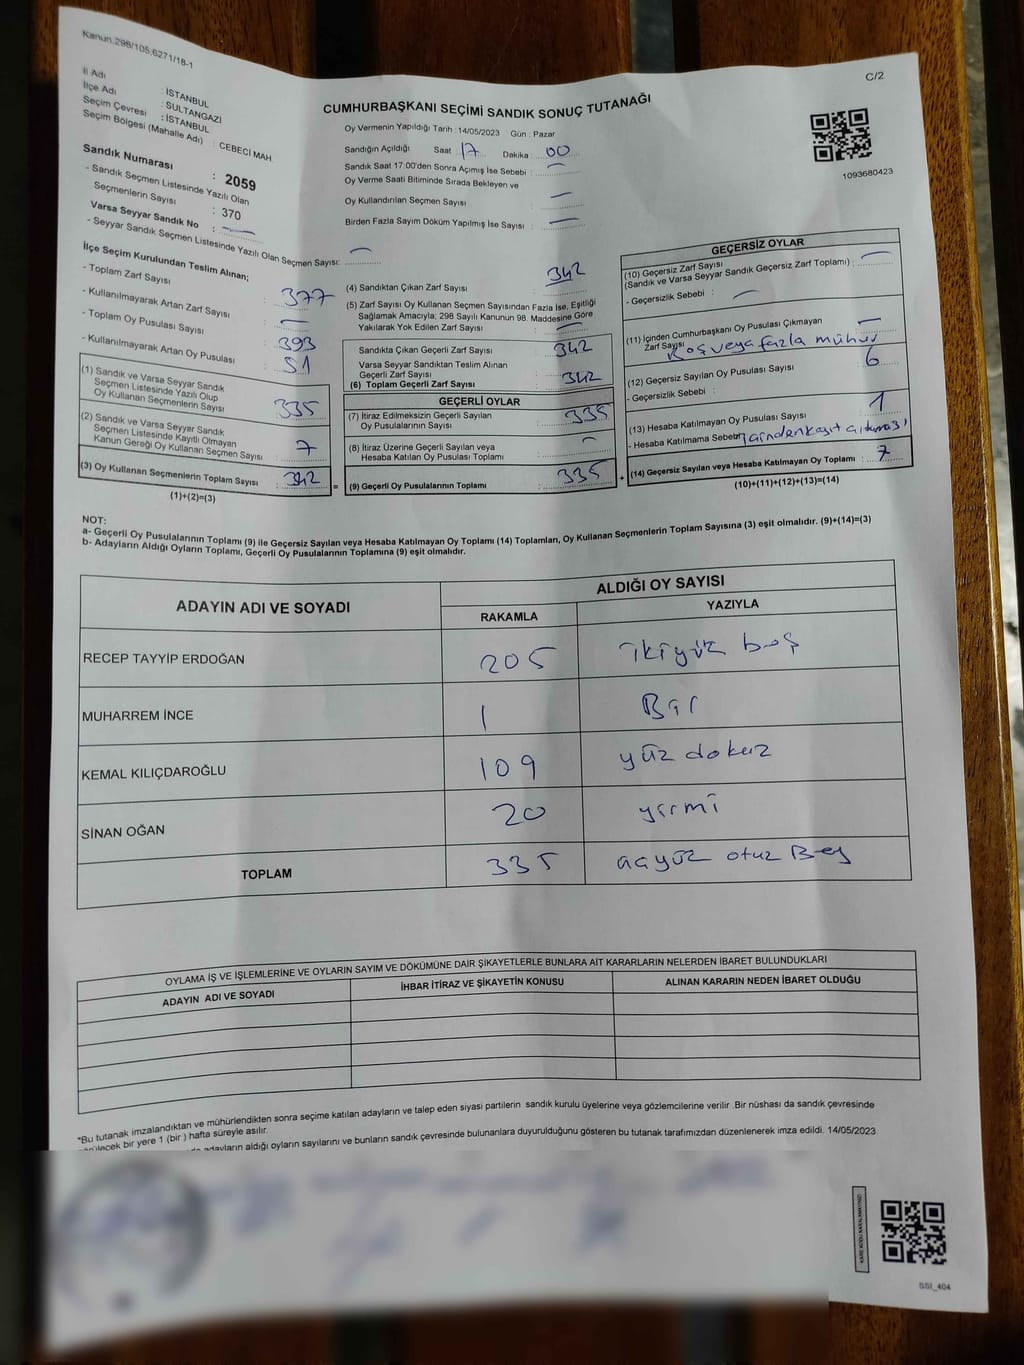 Kanun.298/105,6271/18-1
C/2
İl Adı : İSTANBUL
İlçe Adı : SULTANGAZİ
Seçim Çevresi : İSTANBUL
Seçim Bölgesi (Mahalle Adı) : CEBECİ MAH
Sandık Numarası : 2059
- Sandık Seçmen Listesinde Yazılı Olan
Seçmenlerin Sayısı : 370
Varsa Seyyar Sandık No :
- Seyyar Sandık Seçmen Listesinde Yazılı Olan Seçmen Sayısı:
CUMHURBAŞKANI SEÇİMİ SANDIK SONUÇ TUTANAĞI
Oy Vermenin Yapıldığı Tarih :14/05/2023 Gün : Pazar
Sandığın Açıldığı Saat : 17 Dakika : 00
Sandık Saat 17:00'den Sonra Açımış İse Sebebi :
Oy Verme Saati Bitiminde Sırada Bekleyen ve
Oy Kullandırılan Seçmen Sayısı :
Birden Fazla Sayım Döküm Yapılmış İse Sayısı :
1093680423
İlçe Seçim Kurulundan Teslim Alınan;
- Toplam Zarf Sayısı : 377
- Kullanılmayarak Artan Zarf Sayısı :
- Toplam Oy Pusulası Sayısı : 393
- Kullanılmayarak Artan Oy Pusulası : 51
(1) Sandık ve Varsa Seyyar Sandık
Seçmen Listesinde Yazılı Olup
Oy Kullanan Seçmenlerin Sayısı : 335
(2) Sandık ve Varsa Seyyar Sandık
Seçmen Listesinde Kayıtlı Olmayan
Kanun Gereği Oy Kullanan Seçmen Sayısı : 7
(3) Oy Kullanan Seçmenlerin Toplam Sayısı : 342
(1)+(2)=(3)
(4) Sandıktan Çıkan Zarf Sayısı : 342
(5) Zarf Sayısı Oy Kullanan Seçmen Sayısından Fazla İse, Eşitliği
Sağlamak Amacıyla; 298 Sayılı Kanunun 98. Maddesine Göre
Yakılarak Yok Edilen Zarf Sayısı :
Sandıkta Çıkan Geçerli Zarf Sayısı : 342
Varsa Seyyar Sandıktan Teslim Alınan
Geçerli Zarf Sayısı
(6) Toplam Geçerli Zarf Sayısı : 342
GEÇERLİ OYLAR
(7) İtiraz Edilmeksizin Geçerli Sayılan
Oy Pusulalarının Sayısı : 335
(8) İtiraz Üzerine Geçerli Sayılan veya
Hesaba Katılan Oy Pusulası Toplamı :
= (9) Geçerli Oy Pusulalarının Toplamı : 335 +
GEÇERSİZ OYLAR
(10) Geçersiz Zarf Sayısı
(Sandık ve Varsa Seyyar Sandık Geçersiz Zarf Toplamı) :
- Geçersizlik Sebebi :
(11) İçinden Cumhurbaşkanı Oy Pusulası Çıkmayan
Zarf Sayısı
Boş veya fazla mühür
(12) Geçersiz Sayılan Oy Pusulası Sayısı : 6
- Geçersizlik Sebebi :
(13) Hesaba Katılmayan Oy Pusulası Sayısı : 1
- Hesaba Katılmama Sebebi :
(14) Geçersiz Sayılan veya Hesaba Katılmayan Oy Toplamı : 7
(10)+(11)+(12)+(13)=(14)
NOT:
a- Geçerli Oy Pusulalarının Toplamı (9) ile Geçersiz Sayılan veya Hesaba Katılmayan Oy Toplamı (14) Toplamları, Oy Kullanan Seçmenlerin Toplam Sayısına (3) eşit olmalıdır. (9)+(14)=(3)
b- Adayların Aldığı Oyların Toplamı, Geçerli Oy Pusulalarının Toplamına (9) eşit olmalıdır.
ADAYIN ADI VE SOYADI ALDIĞI OY SAYISI
RAKAMLA YAZIYLA
RECEP TAYYİP ERDOĞAN 205 ikiyüz beş
MUHARREM İNCE 1 Bir
KEMAL KILIÇDAROĞLU 109 yüz dokuz
SİNAN OĞAN 20 yirmi
TOPLAM 335 üçyüz otuz Beş
OYLAMA İŞ VE İŞLEMLERİNE VE OYLARIN SAYIM VE DÖKÜMÜNE DAİR ŞİKAYETLERLE BUNLARA AİT KARARLARIN NELERDEN İBARET BULUNDUKLARI
ADAYIN ADI VE SOYADI İHBAR İTİRAZ VE ŞİKAYETİN KONUSU ALINAN KARARIN NEDEN İBARET OLDUĞU
"Bu tutanak imzalandıktan ve mühürlendikten sonra seçime katılan adayların ve talep eden siyasi partilerin sandık kurulu üyelerine veya gözlemcilerine verilir .Bir nüshası da sandık çevresinde
bir yere 1 (bir ) hafta süreyle asılır.
adayların aldığı oyların sayılarını ve bunların sandık çevresinde bulunanlara duyurulduğunu gösteren bu tutanak tarafımızdan düzenlenerek imza edildi. 14/05/2023
SSI_404